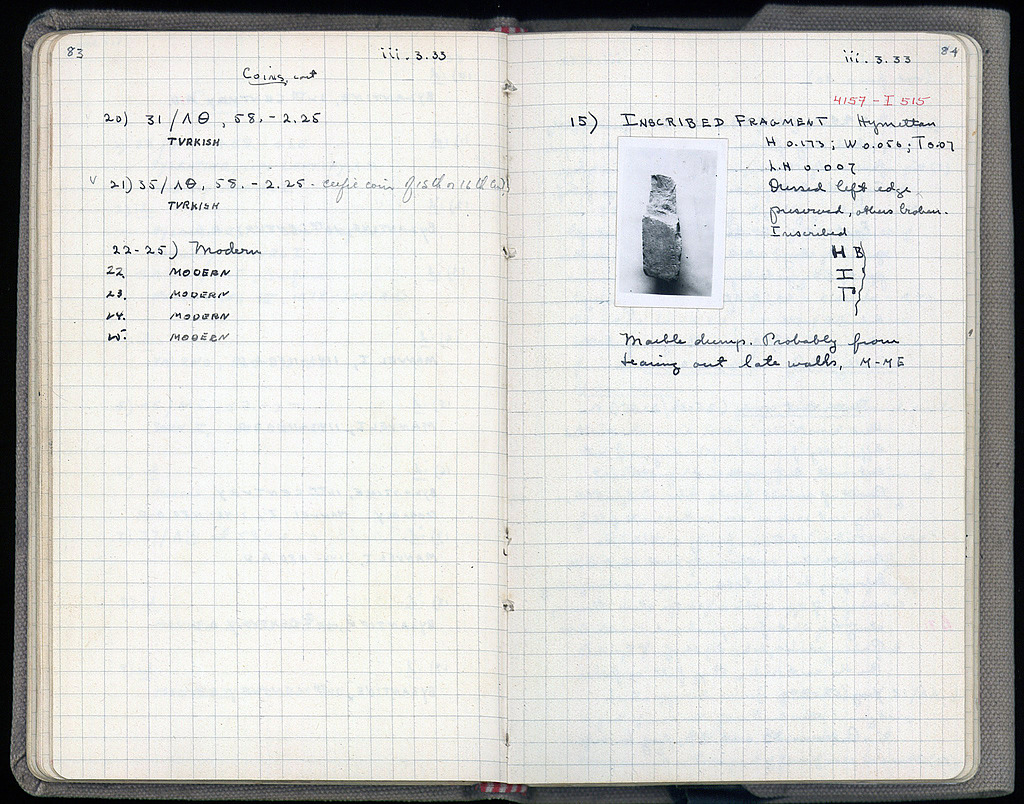 83
iii.3.33
Coins, cont
20) 31/ΛΘ, 58. - 2.25
TURKISH
v 21) 35/ΛΘ, 58. - 2.25 - cufic coin of 15th or 16th
TURKISH
22-25) Modern
22. MODERN
23. MODERN
24. MODERN
25. MODERN
84
iii.3.33
4157 - I 515
15) INSCRIBED FRAGMENT Hymettan
H 0.173; W 0.056; T 0.07
L.H 0.007
Dressed left edge
preserved, others broken.
Inscribed
H B
I
Γ
Marble dump. Probably from
tearing out late walls, M-ME